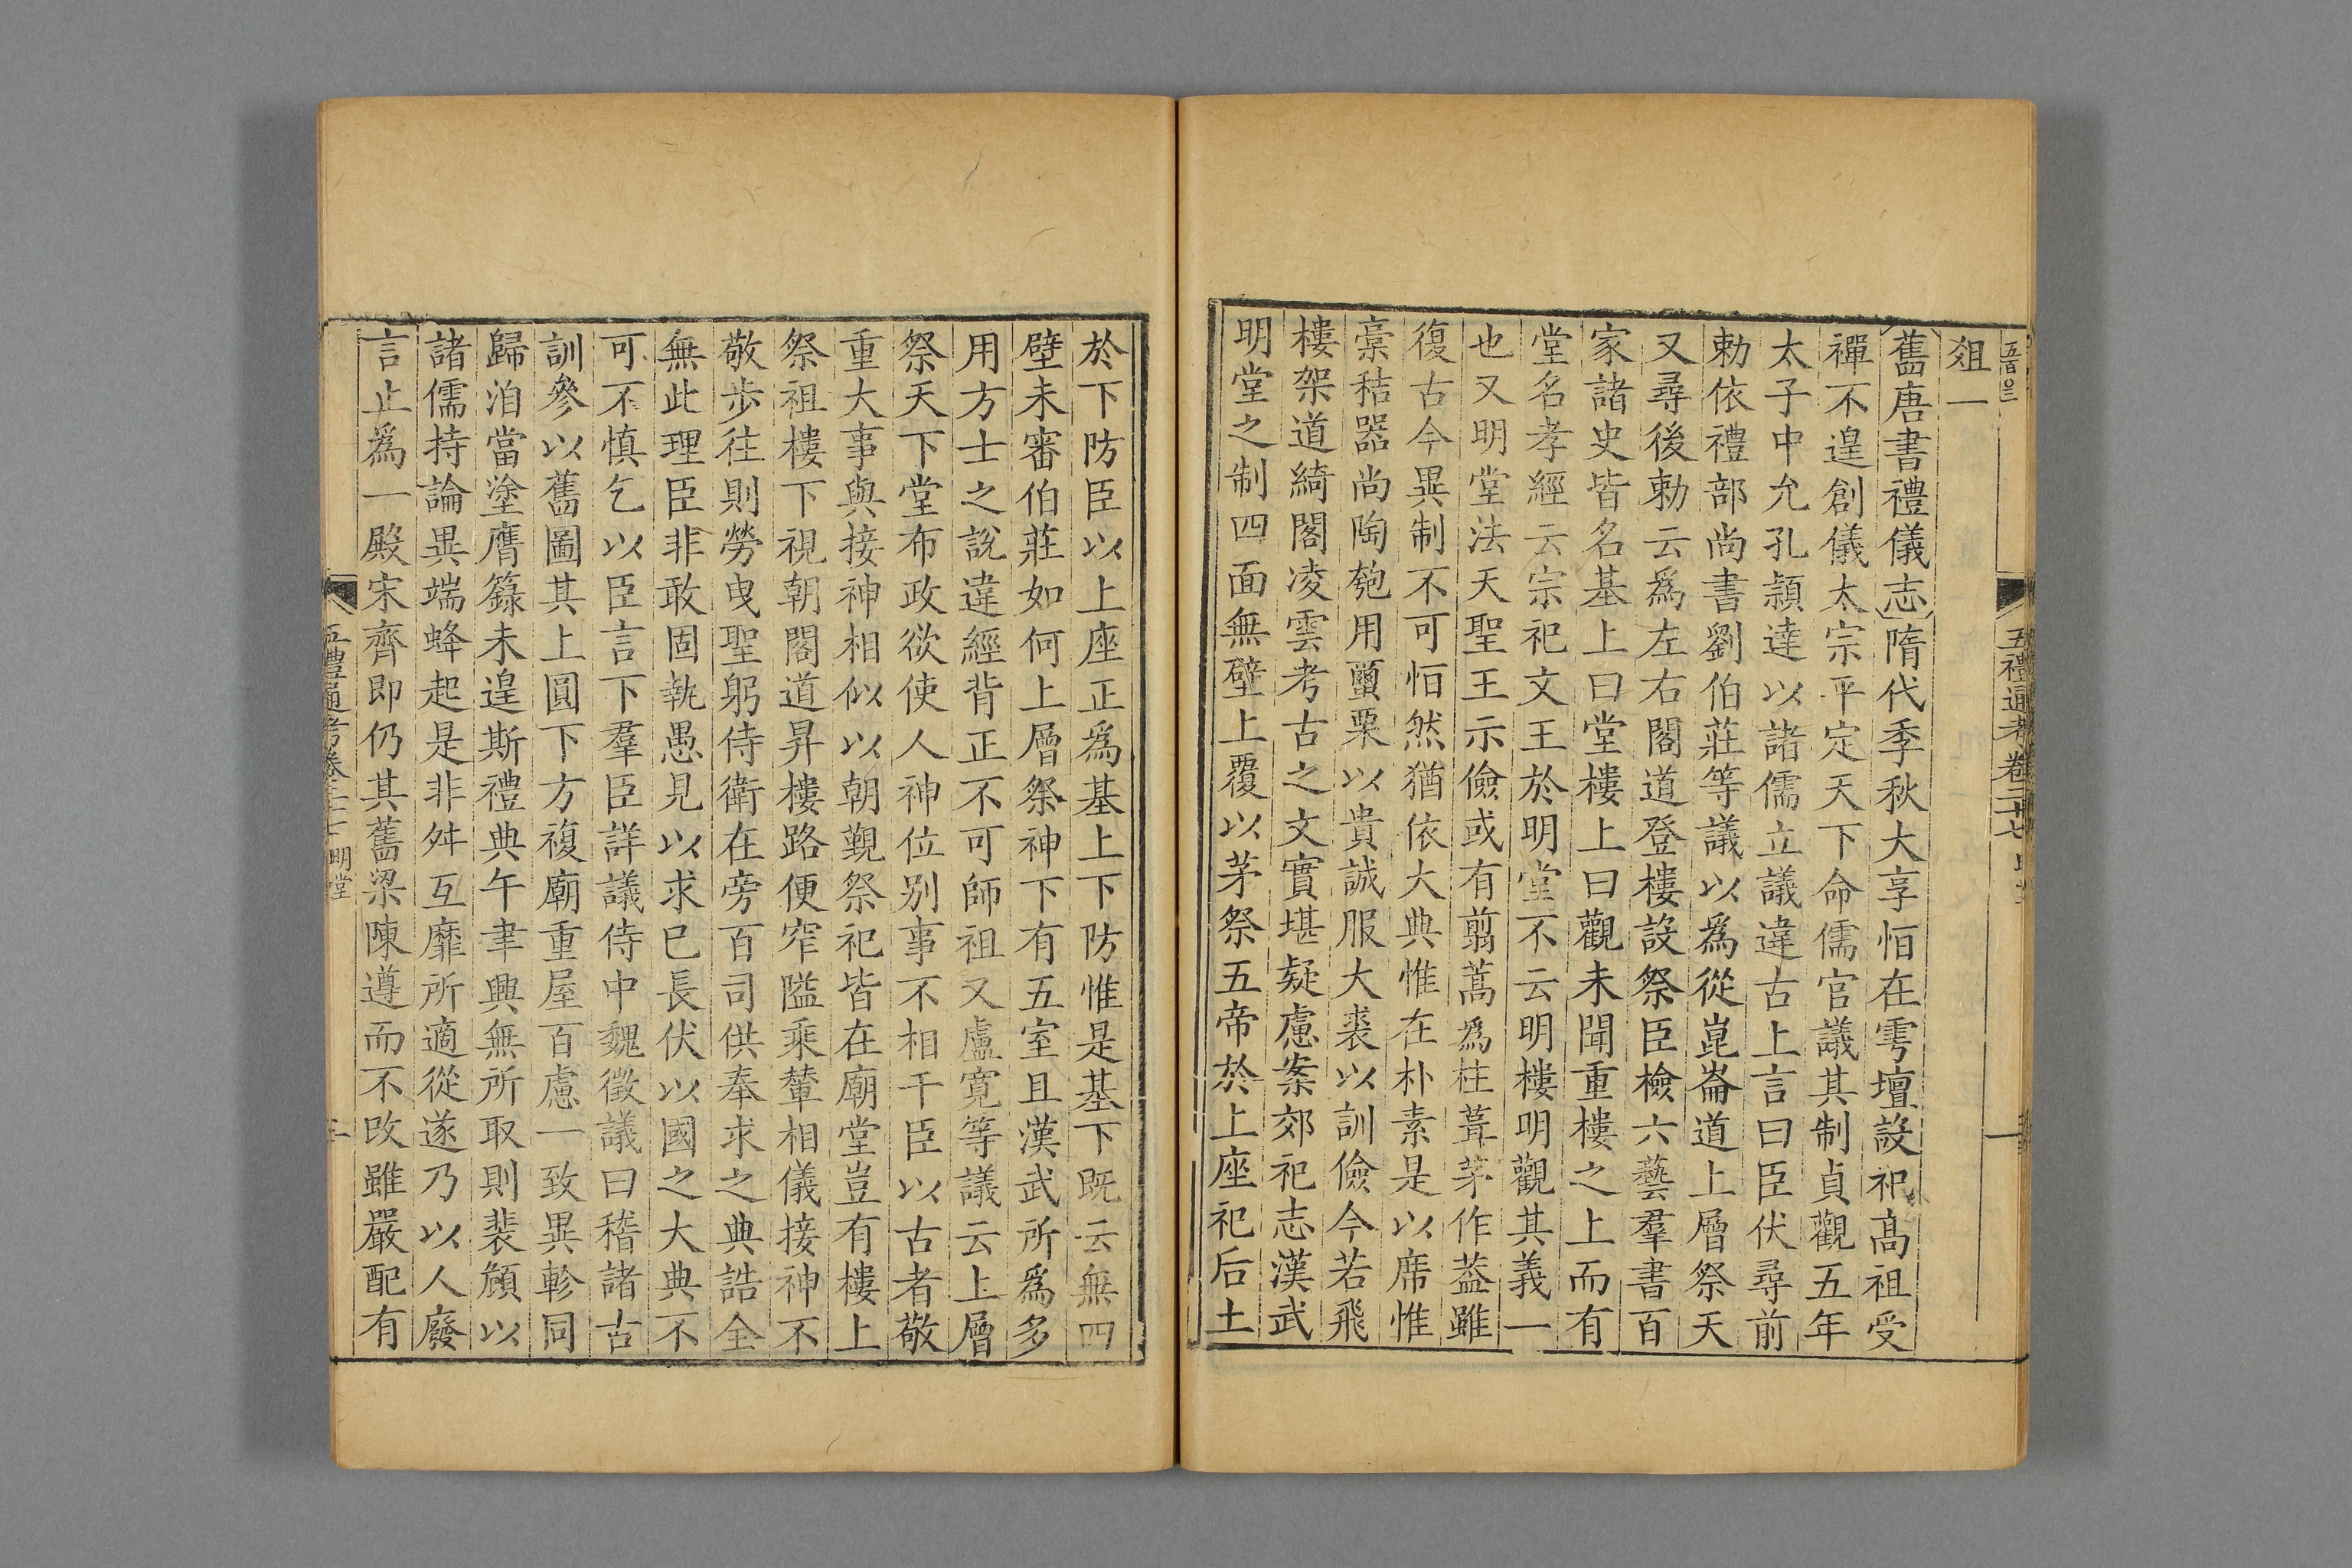 俎一
舊唐書禮儀志隋代季秋大享怕在雩壇設祀高祖受
禪不遑創儀太宗平定天下命儒官議其制貞觀五年
太子中允孔頴達以諸儒立議違古上言曰臣伏尋前
勅依禮部尚書劉伯莊等議以爲從崑崙道上層祭天
又尋後勅云爲左右閣道登樓設祭臣檢六藝羣書百
家諸史皆名基上曰堂樓上曰觀未聞重樓之上而有
堂名孝經云宗祀文王於明堂不云明樓明觀其義一
也又明堂法天聖王示儉或有翦蒿爲柱葺茅作葢雖
復古今異制不可怕然猶依大典惟在朴素是以席惟
槀秸器尚陶匏用蠒栗以貴誠服大裘以訓儉今若飛
樓架道綺閣凌雲考古之文實堪疑慮案郊祀志漢武
明堂之制四面無壁上覆以茅祭五帝於上座祀后土
五禮通考卷二十七
於下防臣以上座正爲基上下防惟是基下既云無四
壁未審伯莊如何上層祭神下有五室且漢武所爲多
用方士之說違經背正不可師祖又盧寛等議云上層
祭天下堂布政欲使人神位别事不相干臣以古者敬
重大事與接神相似以朝覲祭祀皆在廟堂豈有樓上
祭祖樓下視朝閣道昇樓路便窄隘乘輦相儀接神不
敬步往則勞曳聖躬侍衛在旁百司供奉求之典誥全
無此理臣非敢固執愚見以求已長伏以國之大典不
可不慎乞以臣言下羣臣詳議侍中魏徵議曰稽諸古
訓參以舊圖其上圓下方複廟重屋百慮一致異軫同
歸洎當塗膺籙未遑斯禮典午聿興無所取則裴頠以
諸儒持論異端蜂起是非舛互靡所適從遂乃以人廢
言止爲一殿宋齊即仍其舊梁陳遵而不改雖嚴配有
五禮通考卷二十七 明堂